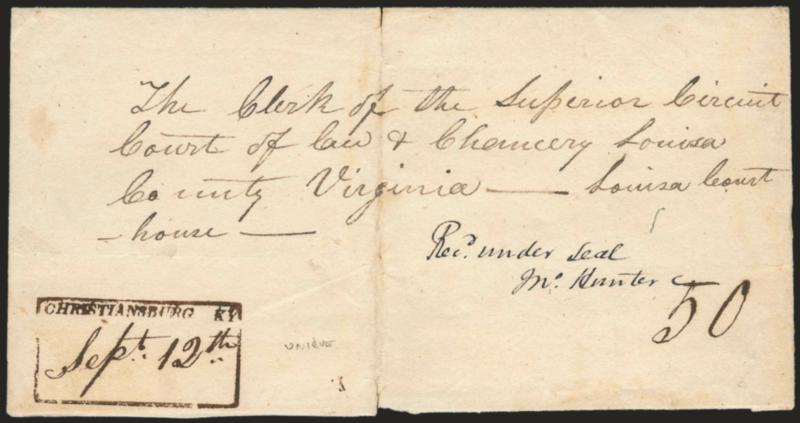 The Clerk of the Superior Circuit
Court of Law & Chancery Louisa
County Virginia — Louisa Court
-house —
Recd. under seal
Jno. Hunter c
50
CHRISTIANSBURG KY
Sept. 12th
UNIQUE